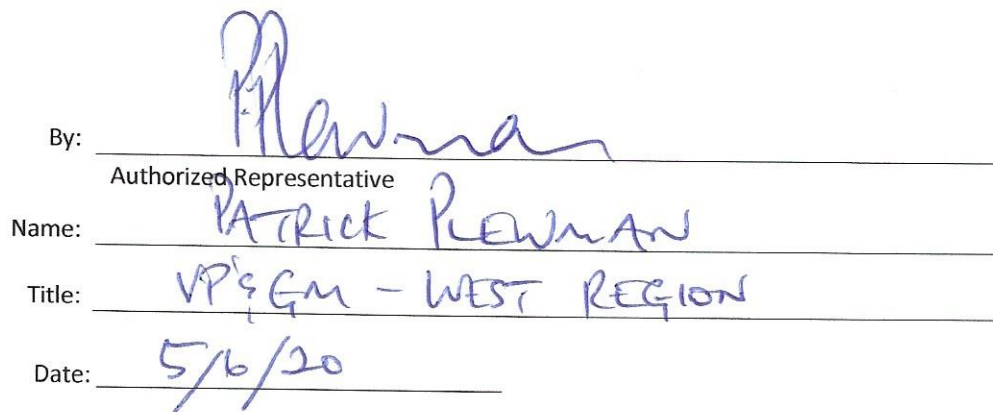 By: PPlewman
Authorized Representative
Name: PATRICK PLEWMAN
Title: VP & GM - WEST REGION
Date: 5/6/20